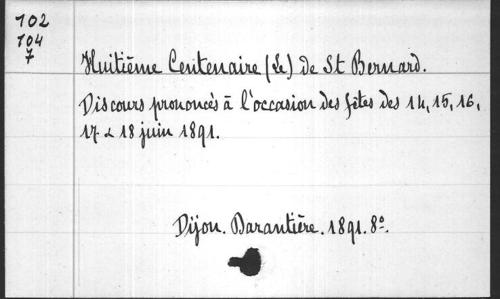 102
104
7
Huitième Centenaire (Le) de St Bernard.
Discours prononcés à l'occasion des fêtes des 14, 15, 16,
17 & 18 juin 1891.
Dijon. Darantière. 1891. 8º.